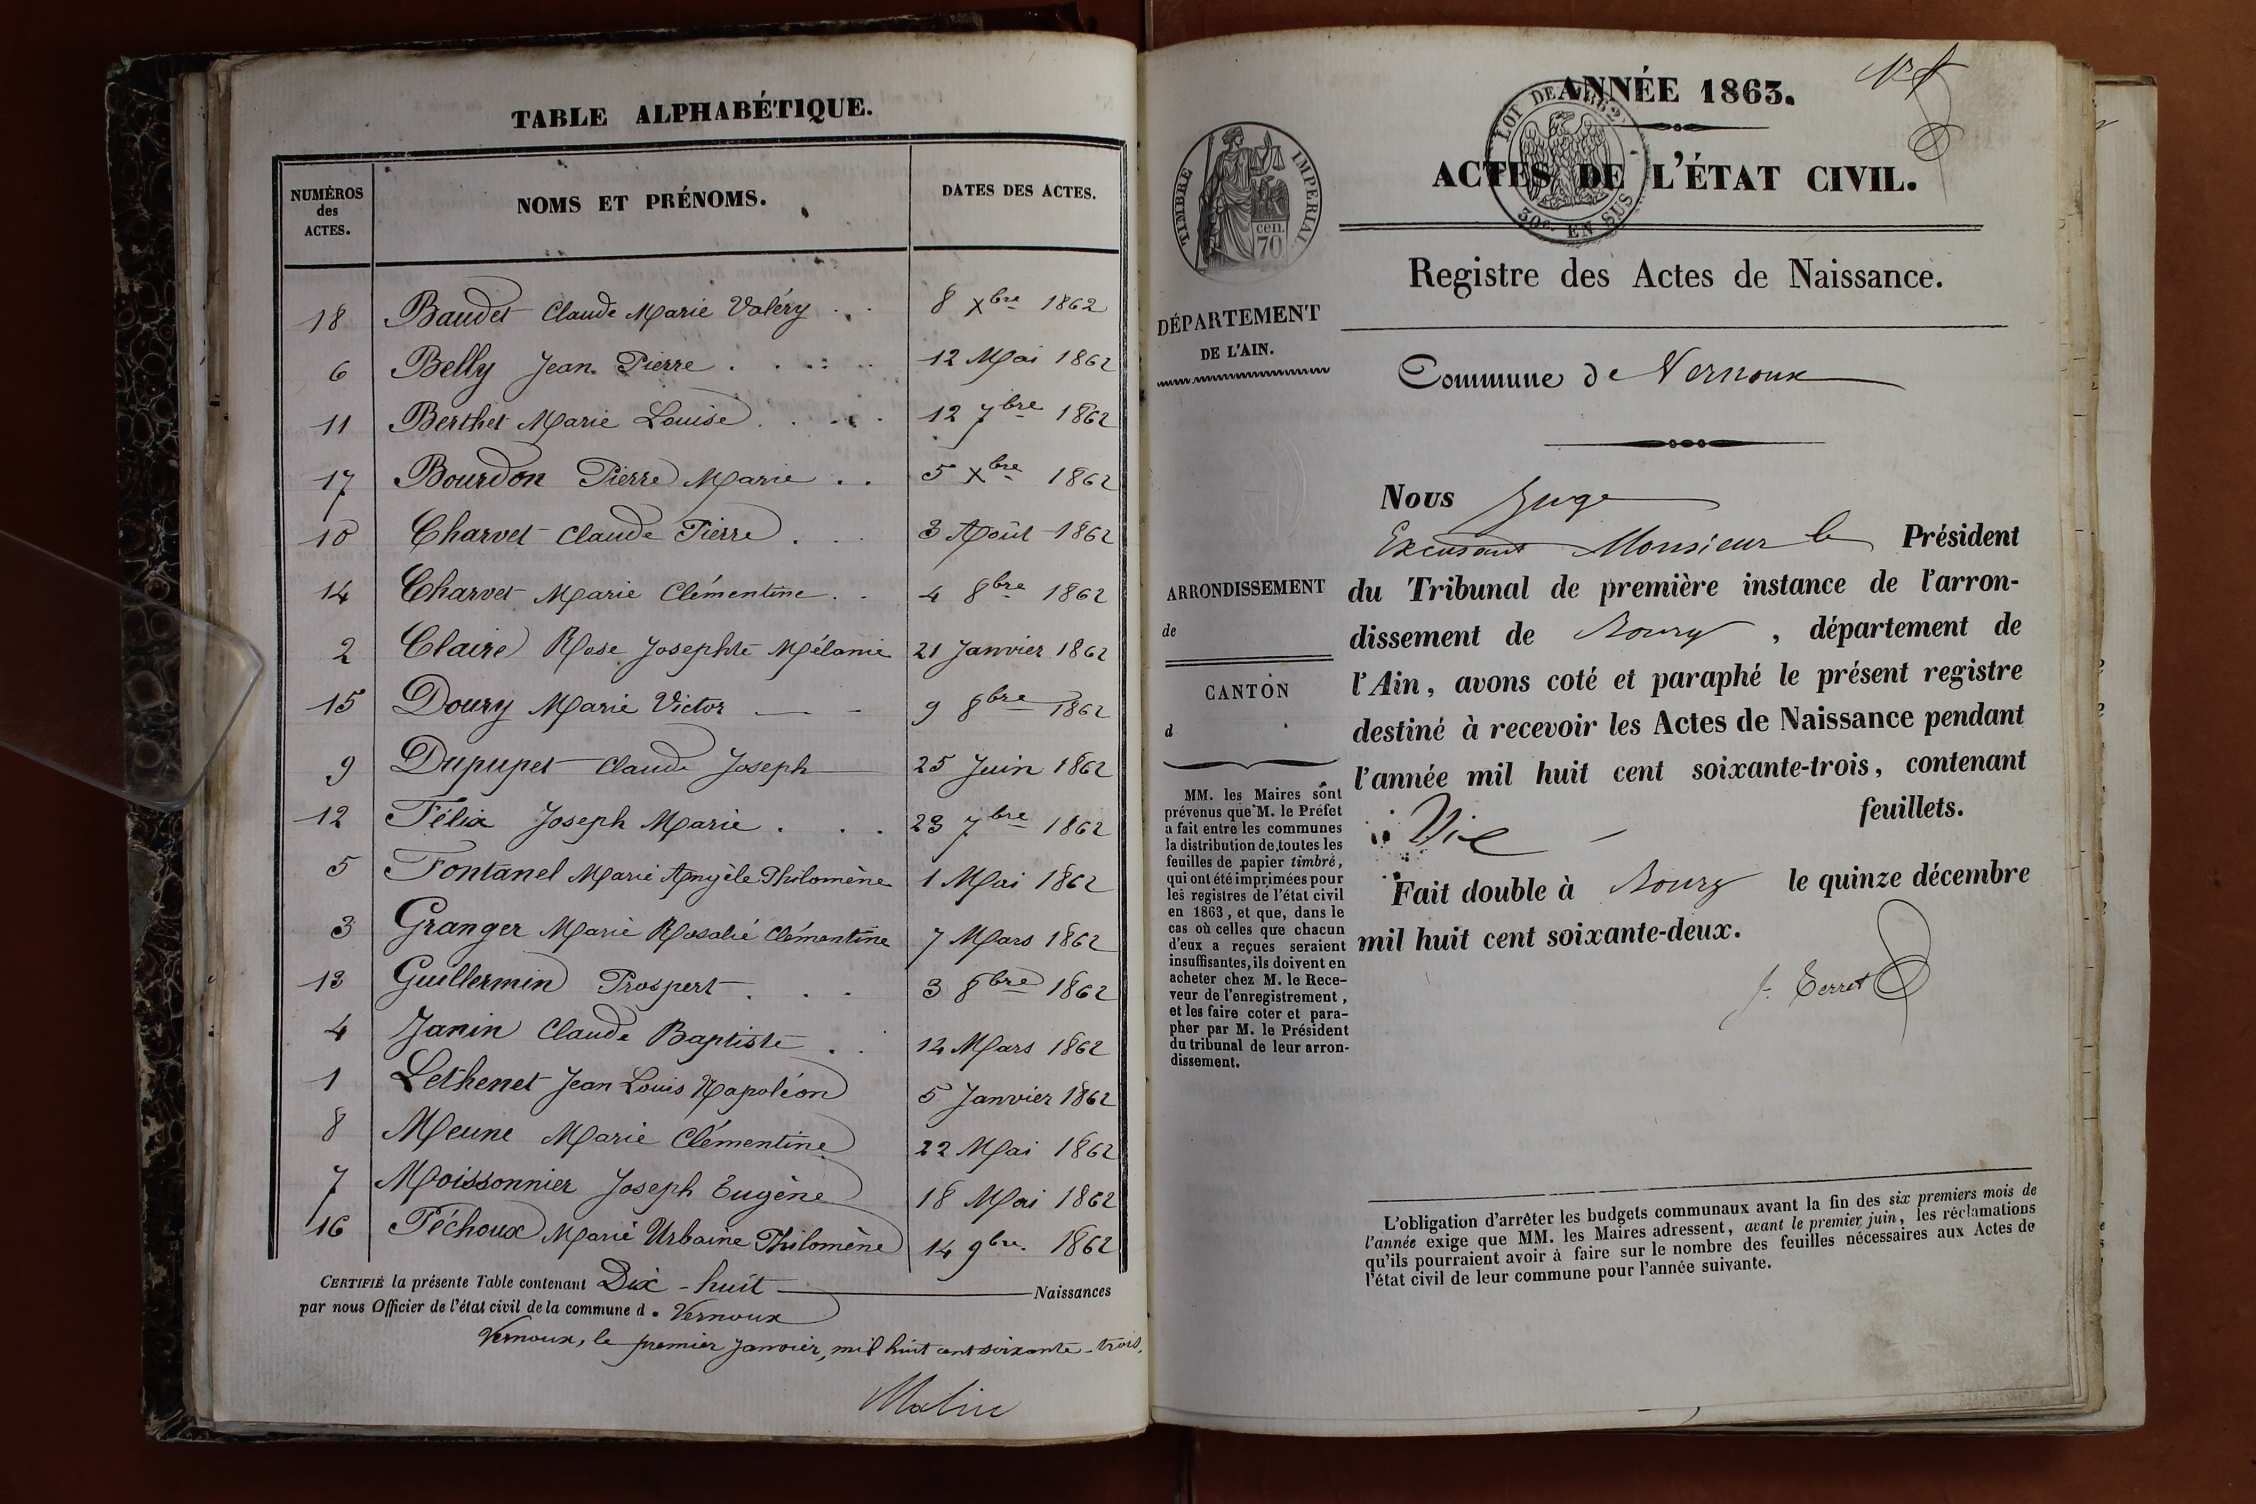 TABLE ALPHABÉTIQUE.
NUMÉROS des ACTES. NOMS ET PRÉNOMS. DATES DES ACTES.
18 Baudet Claude Marie Valéry 8 Xbre 1862
6 Belly Jean Pierre 12 Mai 1862
11 Berthet Marie Louise 12 7bre 1862
17 Bourdon Pierre Marie 5 Xbre 1862
10 Charvet Claude Pierre 3 Août 1862
14 Charvet Marie Clémentine 4 8bre 1862
2 Claire Rose Josephte Mélanie 21 Janvier 1862
15 Doury Marie Victor 9 8bre 1862
9 Dupupet Claude Joseph 25 Juin 1862
12 Félix Joseph Marie 23 7bre 1862
5 Fontanel Marie Angèle Philomène 1 Mai 1862
3 Granger Marie Rosalie Clémentine 7 Mars 1862
13 Guillermin Prospert 3 8bre 1862
4 Janin Claude Baptiste 12 Mars 1862
1 Lethenet Jean Louis Napoléon 5 Janvier 1862
8 Meune Marie Clémentine 22 Mai 1862
7 Moissonnier Joseph Eugène 18 Mai 1862
16 Péchoux Marie Urbaine Philomène 14 9bre 1862
CERTIFIÉ la présente Table contenant Dix-huit Naissances
par nous Officier de l'état civil de la commune d. Vernoux
Vernoux, le premier Janvier, mil huit cent soixante-trois.
ANNÉE 1863.
LOI DE 1862
30c. EN SUS
ACTES DE L'ÉTAT CIVIL.
TIMBRE IMPERIAL
cen.
70
Registre des Actes de Naissance.
DÉPARTEMENT
DE L'AIN.
Commune de Vernoux
Nous Juge
Excusant Monsieur le Président
du Tribunal de première instance de l'arron-
dissement de Bourg, département de
l'Ain, avons coté et paraphé le présent registre
destiné à recevoir les Actes de Naissance pendant
l'année mil huit cent soixante-trois, contenant
feuillets.
Fait double à Bourg le quinze décembre
mil huit cent soixante-deux.
ARRONDISSEMENT
de
CANTON
d
MM. les Maires sont
prévenus que M. le Préfet
a fait entre les communes
la distribution de toutes les
feuilles de papier timbré,
qui ont été imprimées pour
les registres de l'état civil
en 1863, et que, dans le
cas où celles que chacun
d'eux a reçues seraient
insuffisantes, ils doivent en
acheter chez M. le Rece-
veur de l'enregistrement,
et les faire coter et para-
pher par M. le Président
du tribunal de leur arron-
dissement.
L'obligation d'arrêter les budgets communaux avant la fin des six premiers mois de
l'année exige que MM. les Maires adressent, avant le premier juin, les réclamations
qu'ils pourraient avoir à faire sur le nombre des feuilles nécessaires aux Actes de
l'état civil de leur commune pour l'année suivante.